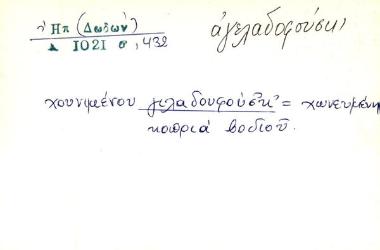 Ἠπ (Δωδών)
1021 σ, 432
ἀγελαδοφούσκι
χουνιμένου γιλαδουφούσκ' = χωνευμένη
κοπριά βοδιοῦ.